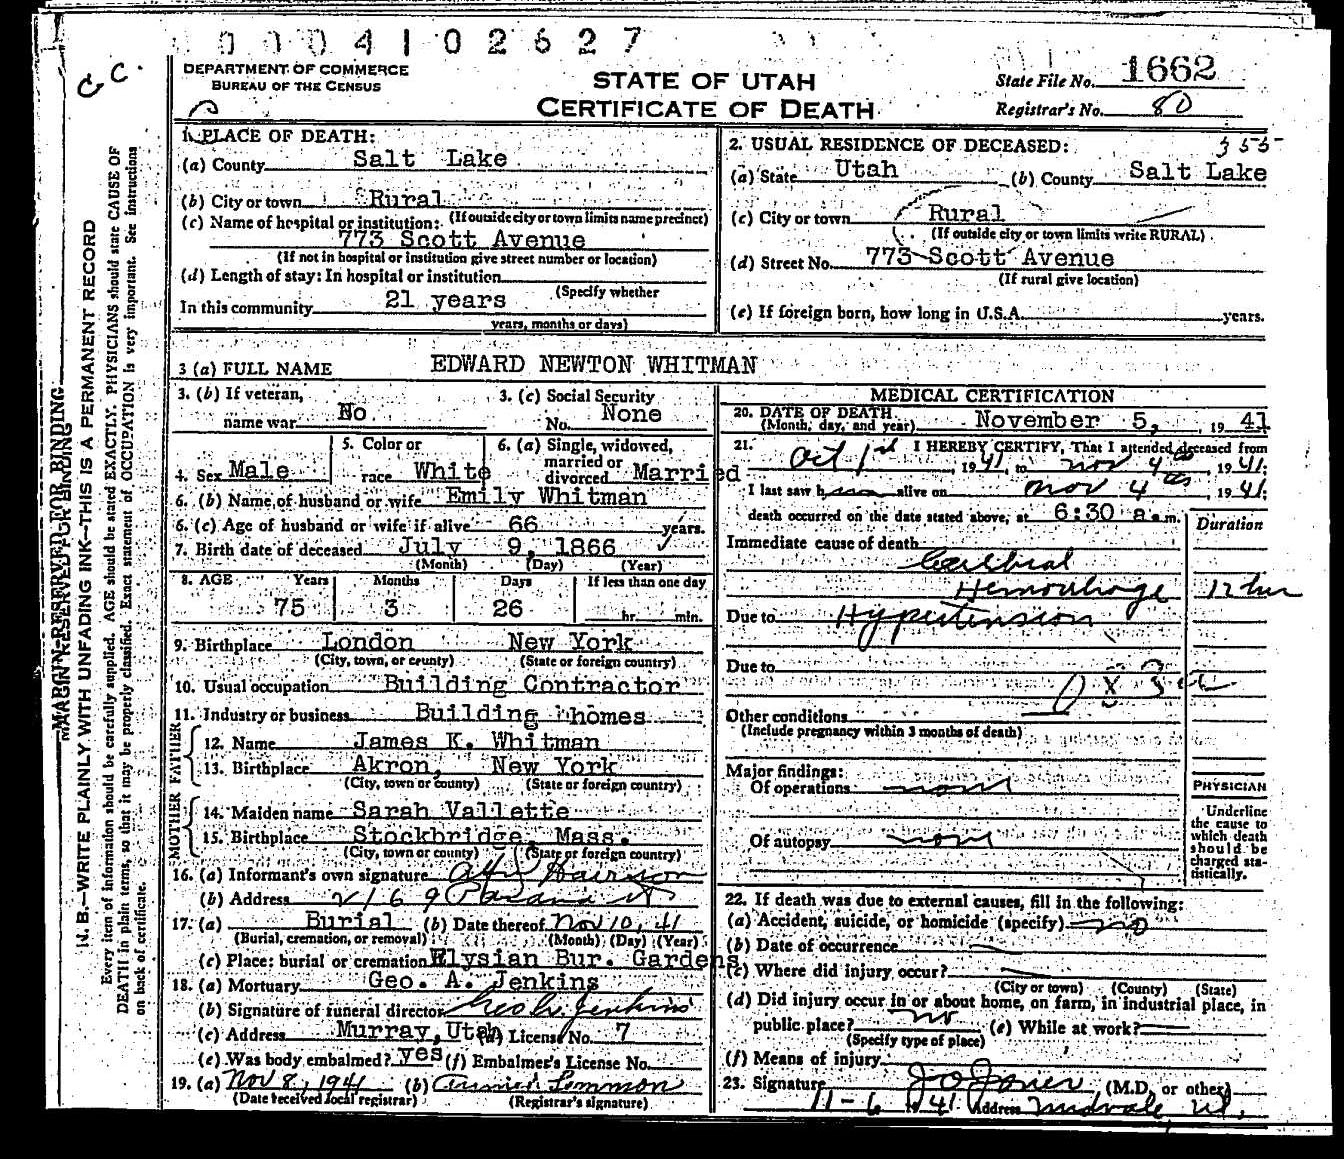 0004102627
G C.
DEPARTMENT OF COMMERCE
BUREAU OF THE CENSUS
STATE OF UTAH
CERTIFICATE OF DEATH
State File No. 1662
Registrar's No. 80
MARGIN RESERVED FOR BINDING
N. B.—WRITE PLAINLY WITH UNFADING INK—THIS IS A PERMANENT RECORD
Every item of information should be carefully supplied. AGE should be stated EXACTLY. PHYSICIANS should state CAUSE OF
DEATH in plain terms, so that it may be properly classified. Exact statement of OCCUPATION is very important. See instructions
on back of certificate.
1. PLACE OF DEATH:
(a) County Salt Lake
(b) City or town Rural
(If outside city or town limits name precinct)
(c) Name of hospital or institution:
773 Scott Avenue
(If not in hospital or institution give street number or location)
(d) Length of stay: In hospital or institution
(Specify whether
In this community 21 years
years, months or days)
2. USUAL RESIDENCE OF DECEASED: 355
(a) State Utah (b) County Salt Lake
(c) City or town Rural
(If outside city or town limits write RURAL)
(d) Street No. 773 Scott Avenue
(If rural give location)
(e) If foreign born, how long in U.S.A. years.
3 (a) FULL NAME EDWARD NEWTON WHITMAN
3. (b) If veteran,
name war No
3. (c) Social Security
No. None
4. Sex Male
5. Color or
race White
6. (a) Single, widowed,
married or
divorced Married
6. (b) Name of husband or wife Emily Whitman
6. (c) Age of husband or wife if alive 66 years.
7. Birth date of deceased July 9, 1866
(Month) (Day) (Year)
8. AGE Years Months Days If less than one day
75 3 26 hr. min.
9. Birthplace London New York
(City, town, or county) (State or foreign country)
10. Usual occupation Building Contractor
11. Industry or business Building homes
FATHER
12. Name James K. Whitman
13. Birthplace Akron, New York
(City, town or county) (State or foreign country)
MOTHER
14. Maiden name Sarah Vallette
15. Birthplace Stockbridge, Mass.
(City, town or county) (State or foreign country)
16. (a) Informant's own signature Harrison
(b) Address 2169
17. (a) Burial (b) Date thereof Nov 10, 41
(Burial, cremation, or removal) (Month) (Day) (Year)
(c) Place: burial or cremation Elysian Bur. Gardens
18. (a) Mortuary Geo. A. Jenkins
(b) Signature of funeral director Geo A. Jenkins
(c) Address Murray, Utah (d) License No. 7
(e) Was body embalmed? yes (f) Embalmer's License No.
19. (a) Nov 8, 1941 (b) Lemmon
(Date received local registrar) (Registrar's signature)
MEDICAL CERTIFICATION
20. DATE OF DEATH November 5, 1941
(Month, day, and year)
21. I HEREBY CERTIFY, That I attended deceased from
Oct 1st, 1941, to Nov 4th, 1941;
I last saw him alive on Nov 4th, 1941;
death occurred on the date stated above, at 6:30 a.m.
Duration
Immediate cause of death
Cerebral
Hemorrhage 12 hr
Due to Hypertension
Due to
Other conditions
(Include pregnancy within 3 months of death)
Major findings:
Of operations none
Of autopsy none
PHYSICIAN
Underline
the cause to
which death
should be
charged sta-
tistically.
22. If death was due to external causes, fill in the following:
(a) Accident, suicide, or homicide (specify) no
(b) Date of occurrence
(c) Where did injury occur?
(City or town) (County) (State)
(d) Did injury occur in or about home, on farm, in industrial place, in
public place? no (e) While at work?
(Specify type of place)
(f) Means of injury
23. Signature J O Jones (M.D. or other)
11-6 1941 Address Midvale, Ut.